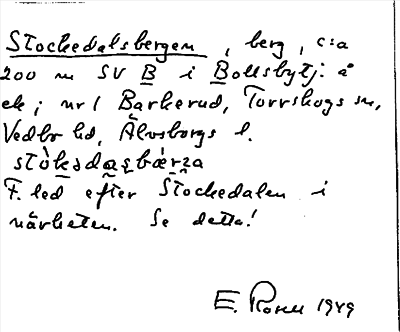 Stockedalsbergen, berg, c:a
200 m SV B i Bollsbytj. å
ek; nr 1 Barkerud, Torrskogs sn,
Vedbo hd, Älvsborgs l.
F. led efter Stockedalen i
närheten. Se detta!
E. 1949